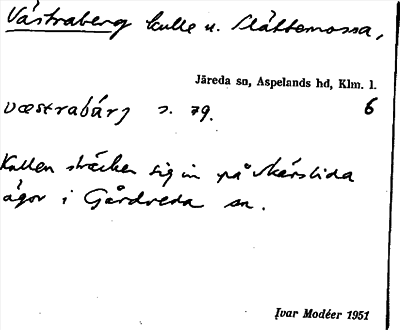 Västraberg kulle u. Slättemossa,
Järeda sn, Aspelands hd, Klm. l.
væstrabärj s. 79. 6
Kullen sträcker sig in på Skärslida
ägor i Gårdveda sn.
Ivar Modéer 1951